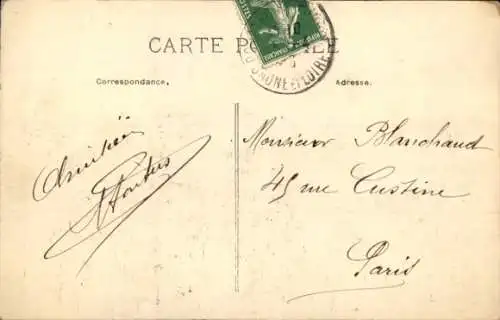 CARTE POSTALE
SAONE-ET-LOIRE
Correspondance,
Adresse.
Amitiés
Monsieur Blanchaud
45 rue Custine
Paris